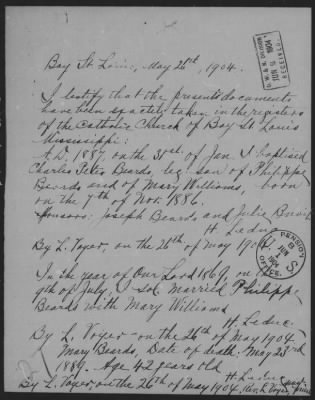 Bay St Louis, May 26th, 1904.
G. W. & N. DIVISION
JUN 9 1904
RECEIVED
I testify that the present documents
have been exactly taken in the registers
of the Catholic Church of Bay St Louis
Mississippi:
A.D. 1887, on the 30th of Jan. I baptised
Charles Peter Beards, leg. son of Philippe
Beards and of Mary Williams, born
on the 7th of Nov. 1886.
Sponsors: Joseph Beards, and Julie
H. Leduc.
By L. Voyer, on the 26th of May 1904.
PENSION OFFICE
JUN
1904
In the year of Our Lord 1869, on the
9th of July, I sol. married Philippe
Beards with Mary Williams
H. Leduc.
By L. Voyer - on the 26th of May 1904.
Mary Beards, Date of death: May 23rd
1889. Age 42 years old
H. Leduc
By L. Voyer, on the 26th of May 1904. Rev. L. Voyer,